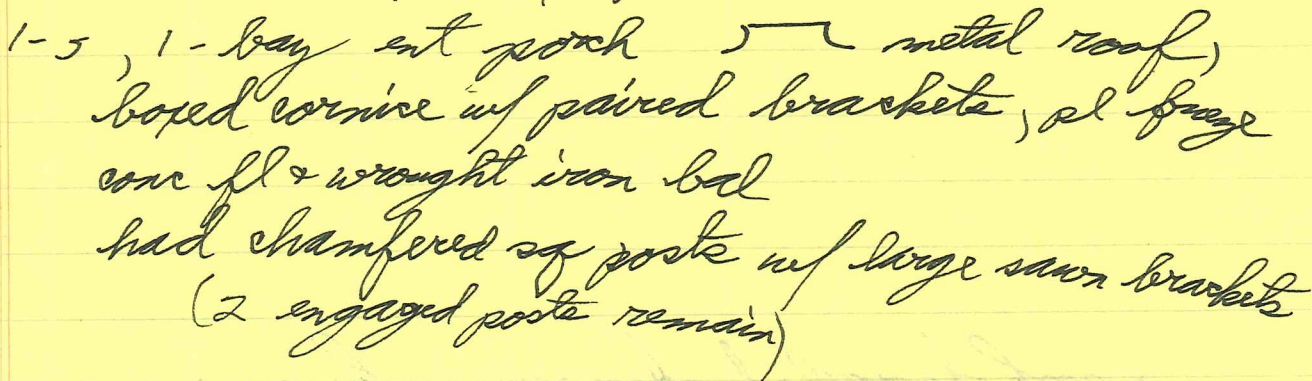 1-s, 1-bay ent porch metal roof,
boxed cornice w/ paired brackets, pl frieze
conc fl & wrought iron bal
had chamfered sq posts w/ large sawn brackets
(2 engaged posts remain)